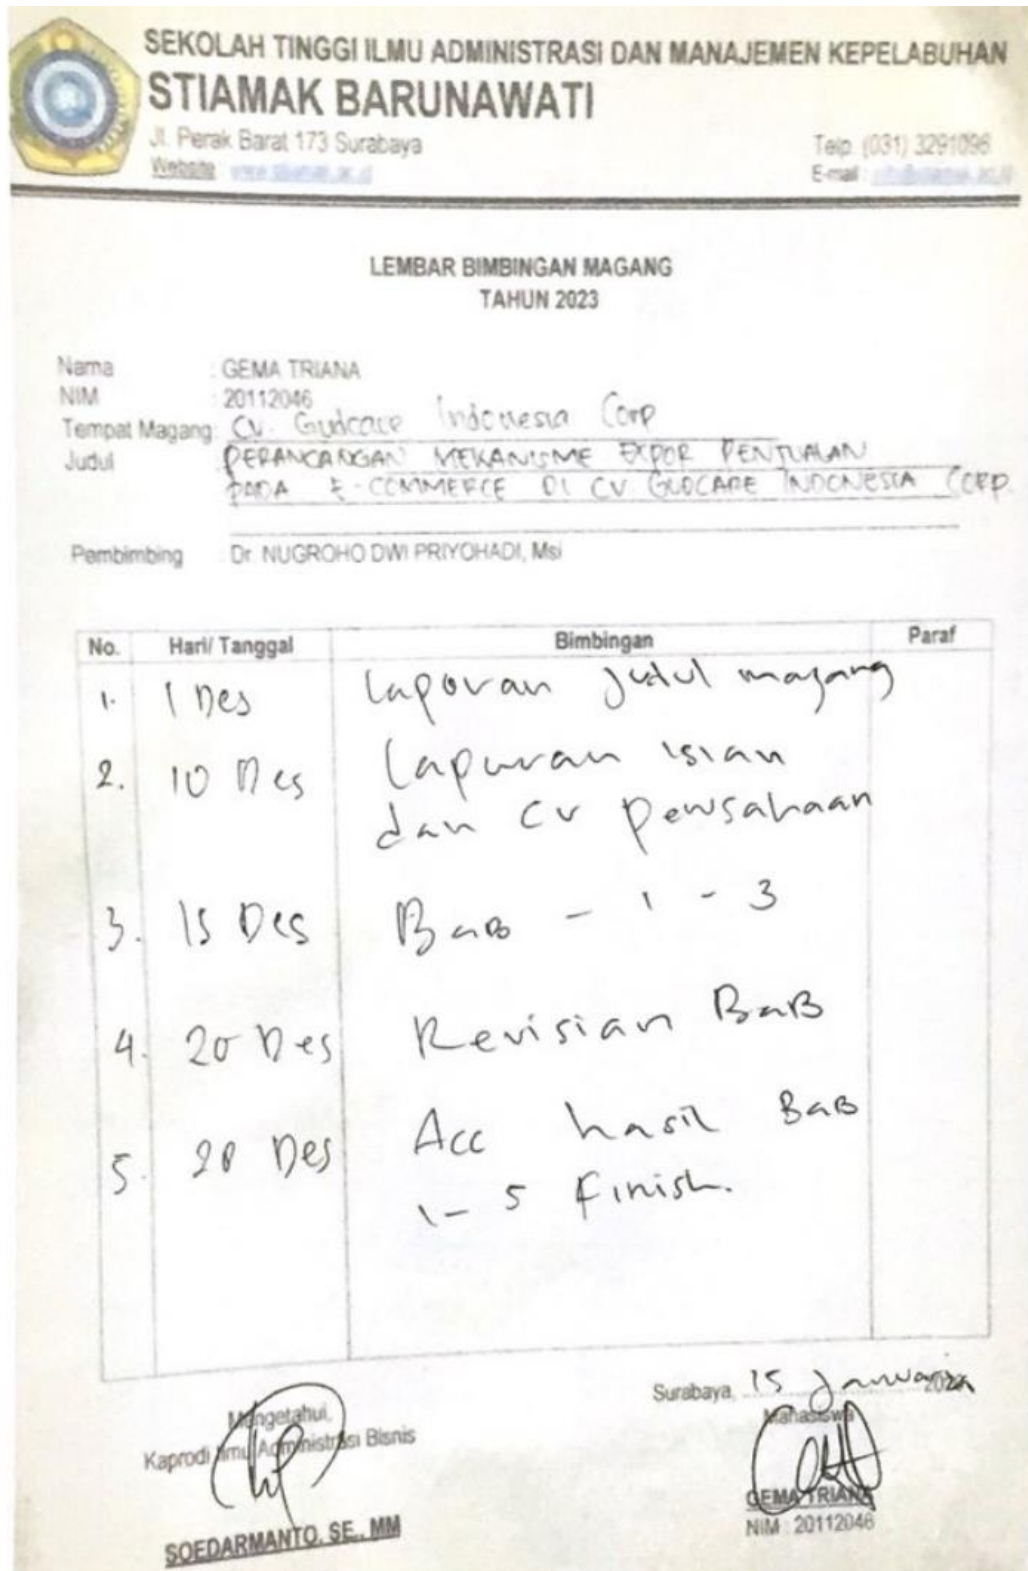 SEKOLAH TINGGI ILMU ADMINISTRASI DAN MANAJEMEN KEPELABUHAN
STIAMAK BARUNAWATI
Jl. Perak Barat 173 Surabaya
Telp. (031) 3291096
Website :
E-mail :
LEMBAR BIMBINGAN MAGANG
TAHUN 2023
Nama : GEMA TRIANA
NIM : 20112046
Tempat Magang: CV. Gudcare Indonesia Corp
Judul PERANCANGAN MEKANISME EXPOR PENJUALAN
PADA E-COMMERCE DI CV GUDCARE INDONESIA CORP.
Pembimbing : Dr. NUGROHO DWI PRIYOHADI, Msi
No. Hari/ Tanggal Bimbingan Paraf
1. 1 Des Laporan Judul magang
2. 10 Des Laporan isian
dan cv perusahaan
3. 15 Des BaB - 1 - 3
4. 20 Des Revisian BaB
5. Des Acc hasil BaB
1 - 5 Finish.
Surabaya, 15 Januari
Mengetahui,
Mahasiswa
Kaprodi Ilmu Administrasi Bisnis
SOEDARMANTO, SE., MM
GEMA TRIANA
NIM : 20112046